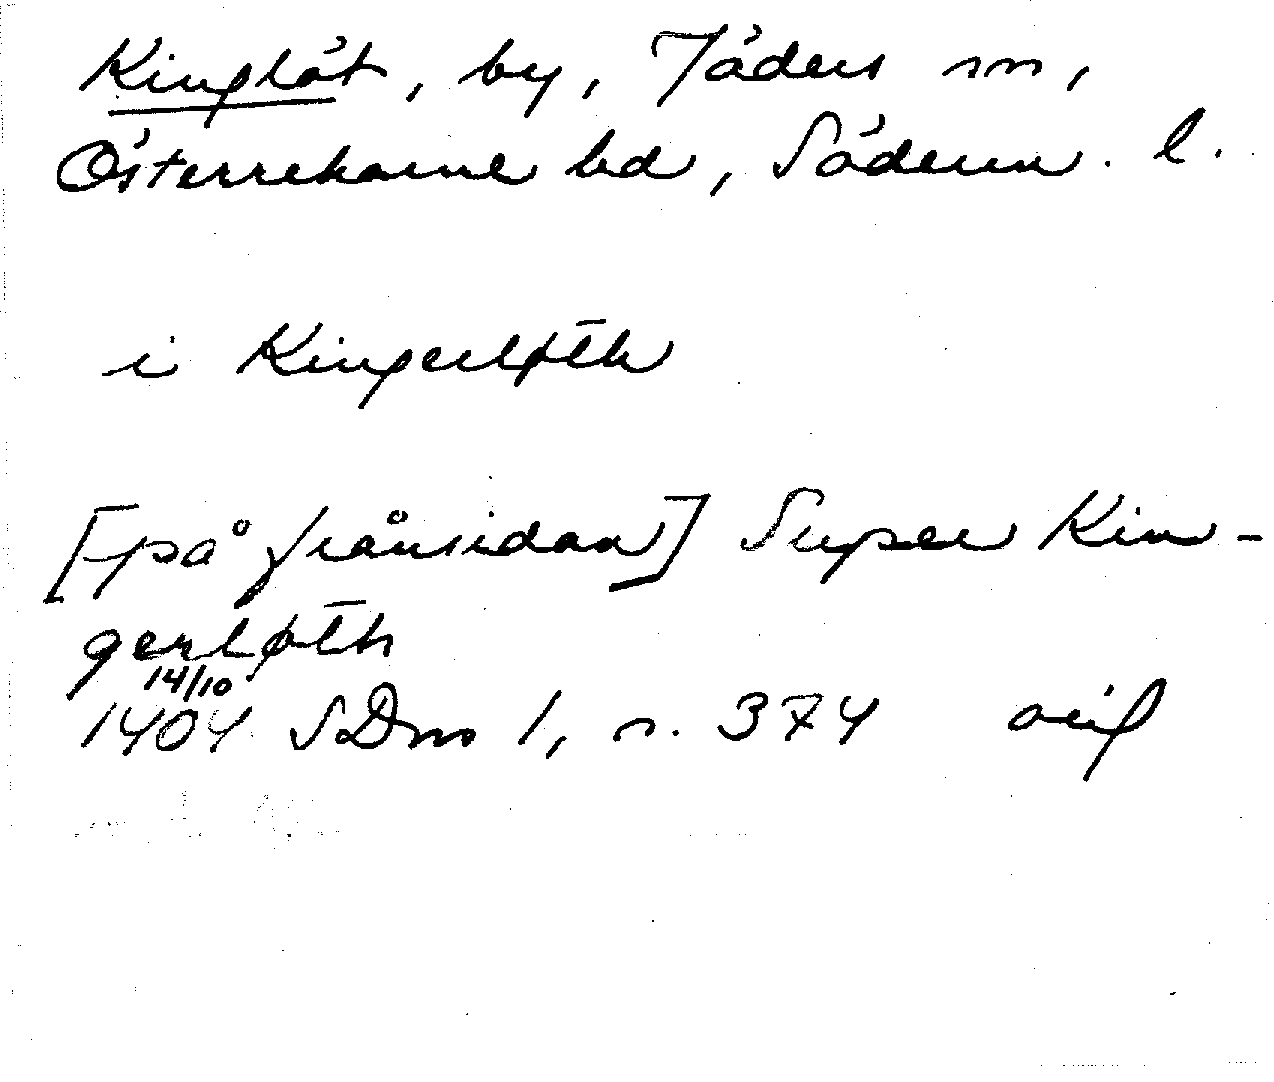 Kinglöt, by, Jäders sn,
Österrekarne hd, Söderm. l.
i Kingerløth
[på frånsidan] Super Kin-
gerløth
14/10
1404 SDns 1, n. 374